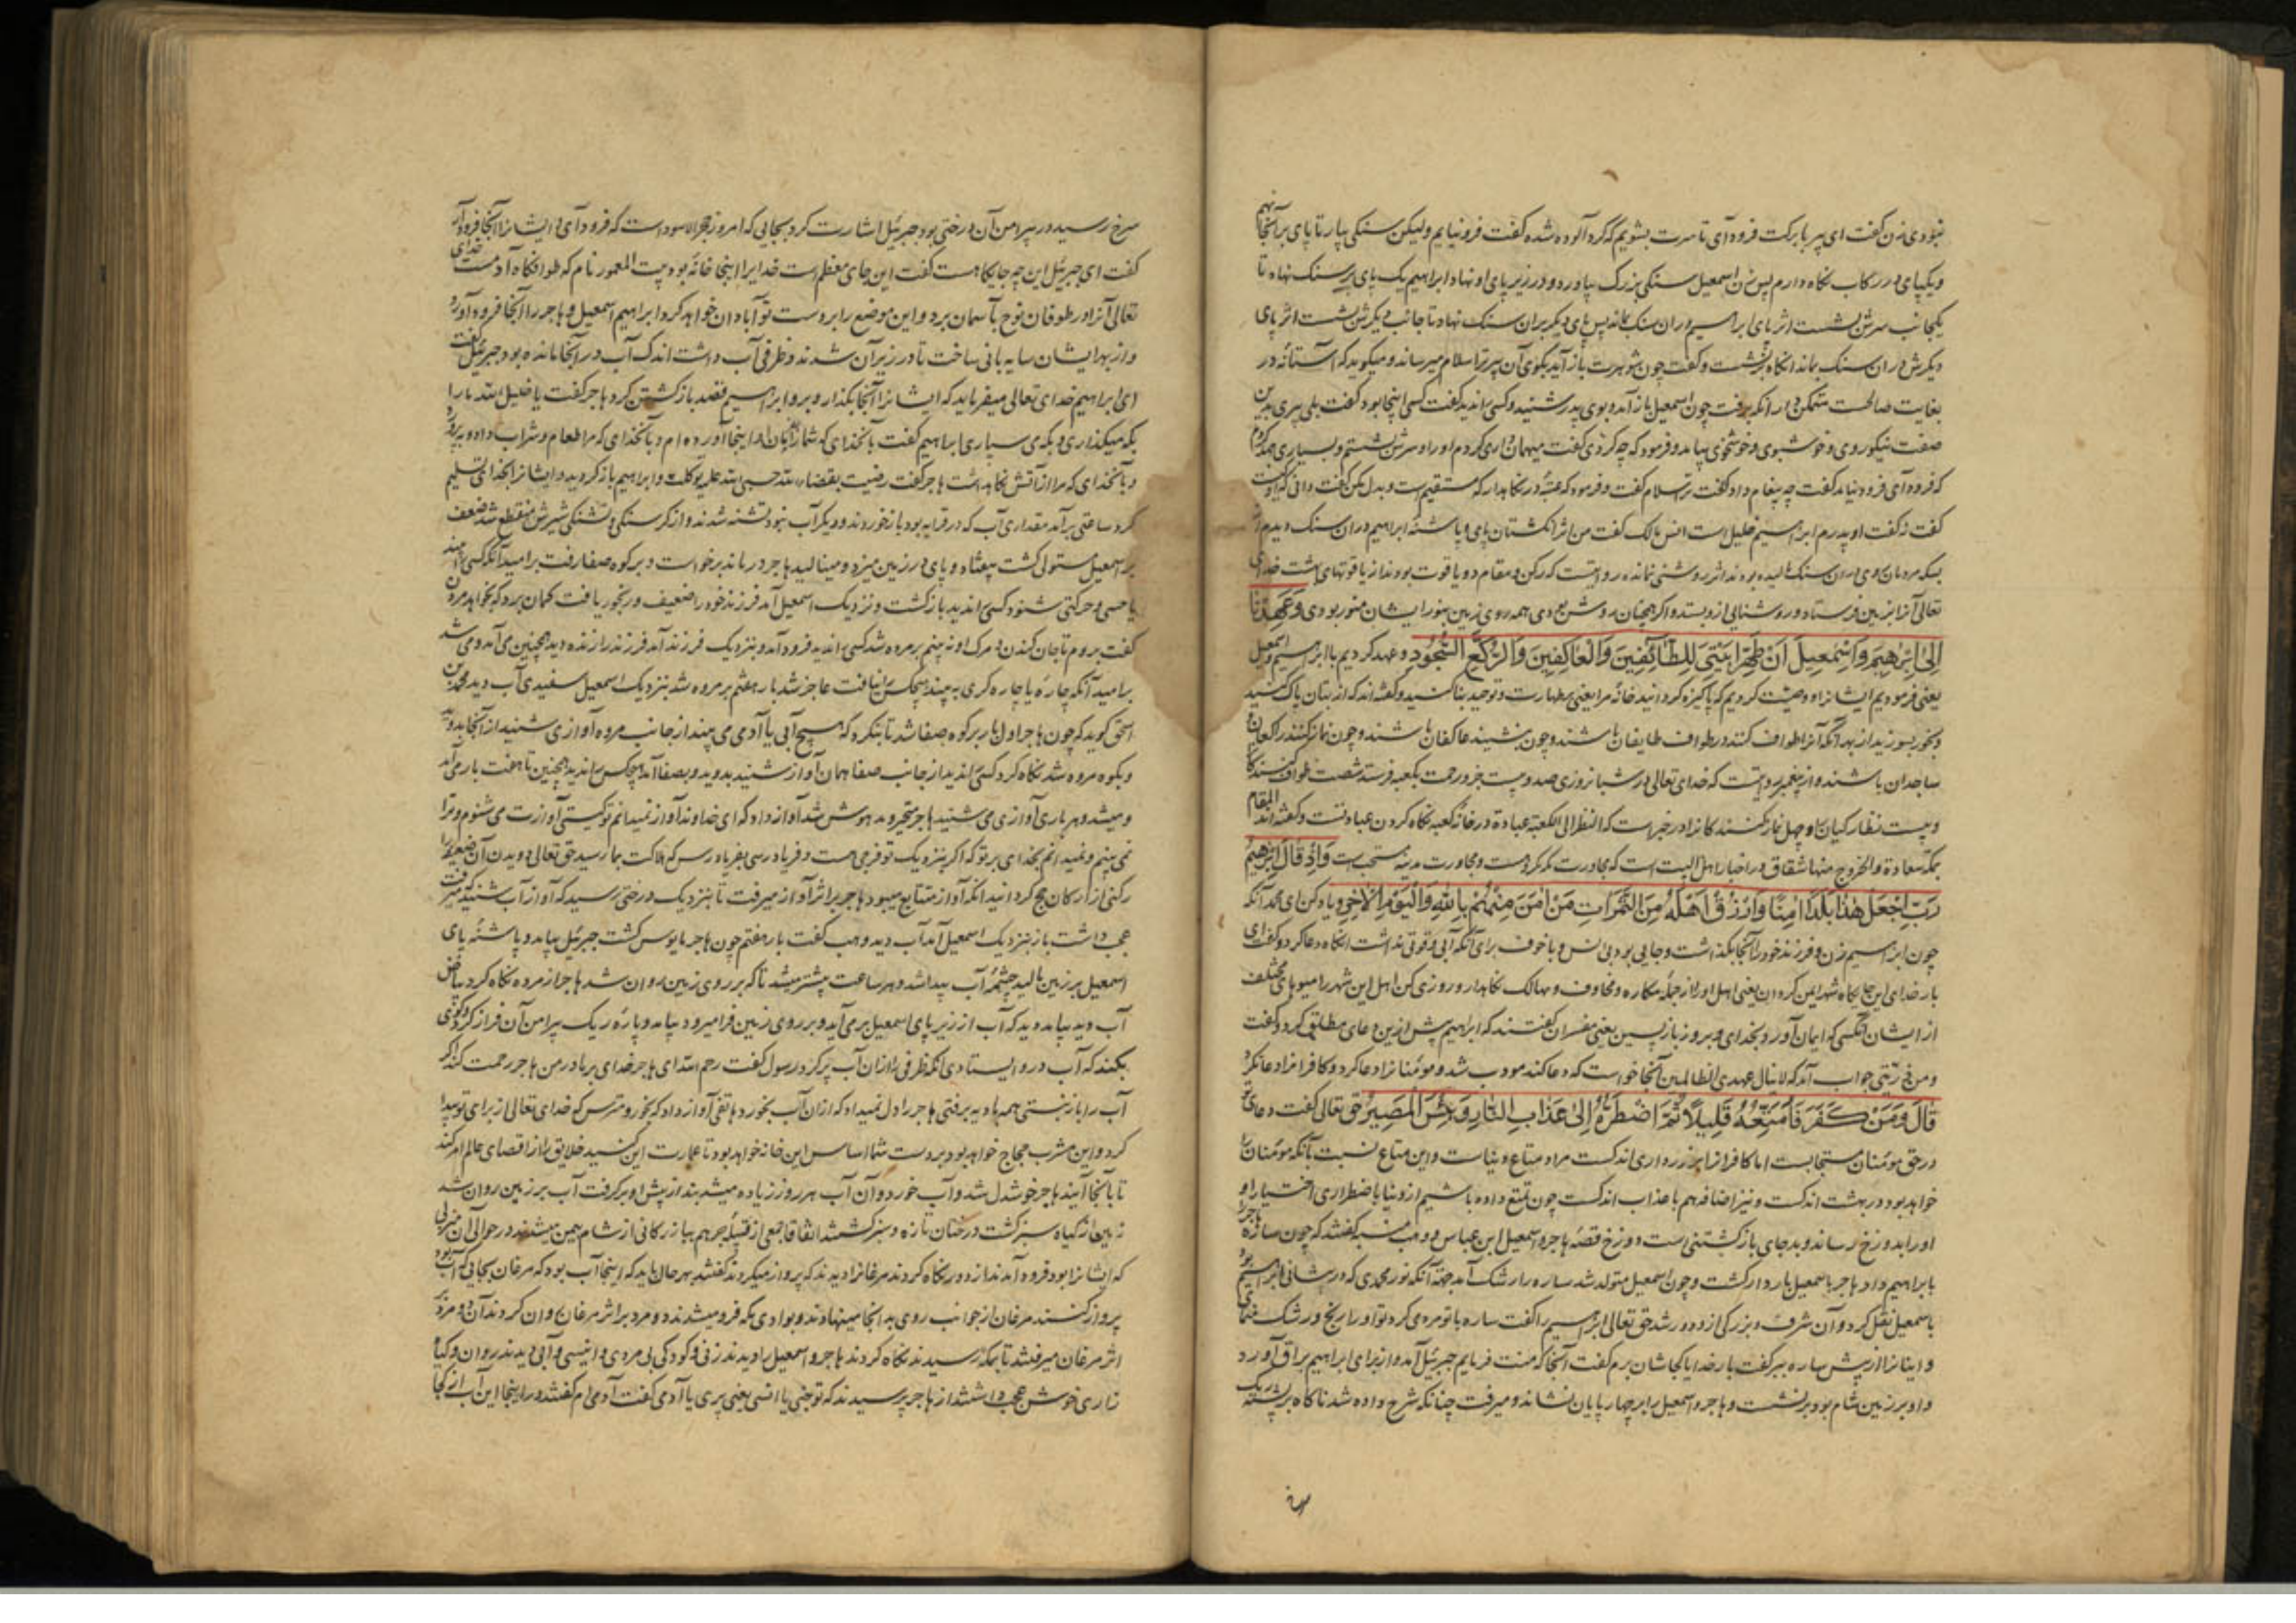 نبودی زن گفت ای پیر با برکت فرود آی تا سرت بشویم که گرد آلوده شده گفت فرو نیایم ولیکن سنکی بیار تا پای بر آنجا نهم
ویکپای در رکاب نکاه دارم پس زن اسمعیل سنکی بزرک بیاورد و در زیر پای او نهاد ابراهیم یک پای بر سنک نهاد تا
یکجانب سرش بشست اثر پای ابراهیم در ان سنک بماند پس پای دیکر بران سنک نهاد تا جانب دیکرش بشست اثر پای
دیکرش در ان سنک بماند انکاه برنشست و کفت چون شوهرت باز آید بکوی آن پیر ترا سلام میرساند و میکوید که آستانه در
بغایت صالحست متمکن دار انکه برفت چون اسمعیل باز آمد و بوی پدر شنید و کسی ندید کفت کسی اینجا بود کفت بلی پیری بدین
صفت نیکو روی و خوشبوی و خوشخوی بیامد و فرمود که چه کردی کفت میهمان داری کردم او را و سرش بشستم و بسیاری جهد کردم
که فرود آی فرود نیامد کفت چه پیغام داد کفت ترا سلام کفت و فرمود که عتبه در نکاهدار که مستقیم است و بدل مکن کفت دانی که او کیست
کفت نه کفت او پدرم ابراهیم خلیل است انس مالک کفت من اثر انکشتان پای و پاشنه ابراهیم دران سنک دیدم اثر
بسکه مردمان روی دران سنک مالیده بودند اثر روشنی نمانده روایتست که رکن و مقام دو یاقوت بودند از یاقوتهای بهشت خدای
تعالی آنرا بزمین فرستاد و روشنایی ازو بستد و اکر همچنان روشن بودی همه روی زمین بنور ایشان منور بودی وَعَهِدْنَا
اِلی اِبْرٰهِیمَ وَاِسْمٰعِیلَ اَنْ طَهِّرَا بَیْتِیَ لِلطَّائِفِینَ وَالْعَاکِفِینَ وَالرُّکَّعِ السُّجُودِ و عهد کردیم با ابراهیم و اسمعیل
یعنی فرمودیم ایشانرا و وصیت کردیم که پاکیزه کردانید خانه مرا یعنی بطهارت و توحید بنا کنید و کفته اند که از بتان پاک کنید
و بخور بسوزید از بهر آنکه آنرا طواف کنند در طواف طایفان باشند و چون بنشینند عاکفان باشند و چون نماز کنند راکعان
ساجدان باشند و از پیغمبر روایتست که خدای تعالی در شبانروزی صد و بیست جزو رحمت بکعبه فرستد شصت طواف کنندکانرا
و بیست نظار کیان را و چهل نماز کنندکانرا در خبر است که النظر الی الکعبة عبادة در خانه کعبه نکاه کردن عبادتست و کفته اند المقام
بمکة سعادة والخروج منها شقاق در اخبار اهل البیت است که مجاورت مکه مکروهست و مجاورت مدینه مستحبست وَاِذْ قَالَ اِبْرٰهِیمُ
رَبِّ اجْعَلْ هٰذَا بَلَدًا اٰمِنًا وَارْزُقْ اَهْلَهُ مِنَ الثَّمَرَاتِ مَنْ اٰمَنَ مِنْهُمْ بِاللّٰهِ وَالْیَوْمِ الْاٰخِرِ و یاد کن ای محمد آنکه
چون ابراهیم زن و فرزند خود را آنجا بکذاشت و جایی بود بی انس و با خوف برای آنکه آبی و قوتی نداشت انکاه دعا کرد و کفت ای
بار خدای این جایکاه شهر ایمن کردان یعنی اهل او را از جمله مکاره و مخاوف و مهالک نکاهدار و روزی کن اهل این شهر را میوهای مختلف
از ایشان آنکسی که ایمان آورد بخدای و بروز بازپسین یعنی مفسران کفتند که ابراهیم پیش ازین دعای مطلق کرد و کفت
ومن ذریتی جواب آمد که لاینال عهدی الظالمین آنجا خواست که دعا کند مودب شد و مؤمنانرا دعا کرد و کافرانرا دعا نکرد
قَالَ وَمَنْ کَفَرَ فَاُمَتِّعُهُ قَلِیلًا ثُمَّ اَضْطَرُّهُ اِلٰی عَذَابِ النَّارِ وَبِئْسَ الْمَصِیرُ حق تعالی کفت دعای تو
در حق مومنان مستجابست اما کافرانرا برخورداری اندکست مراد متاع دنیاست و این متاع نسبت بآنکه مومنان را
خواهد بود در بهشت اندکست و نیز اضافه هم با عذاب اندکست چون تمتع داده باشیم از دنیا باضطراری اختیار او
او را بدوزخ رساند و بد جای بازکشتنی است دوزخ قصه هاجر و اسمعیل ابن عباس و وهب منبه کفتند که چون ساره هاجرا
بابراهیم داد هاجر باسمعیل باردار کشت و چون اسمعیل متولد شد ساره را رشک آمد بجهة آنکه نور محمدی که در پیشانی ابراهیم بود
باسمعیل نقل کرد و آن شرف و بزرکی ازو دور شد حق تعالی ابراهیم را کفت ساره با تو مروت کرد تو او را رنج و رشک منمای
و اینانرا از پیش ساره ببر کفت بار خدایا کجاشان برم کفت آنجا که منت فرمایم جبرئیل آمد و از برای ابراهیم براق آورد
و او بر زمین شام بود بر نشست و هاجر و اسمعیل را بر چهارپایان نشاند و میرفت چنانکه شرح داده شد تا کاه بر پشته ریک
سرخ رسید در پیرامن آن درختی بود جبرئیل اشارت کرد بجایی که امروز حجر الاسود است که فرود آی و ایشانرا آنجا فرود آر
کفت ای جبرئیل این چه جایکاهست کفت این جای معظم است خدایرا اینجا خانه بود بیت المعمور نام که طوافکاه آدمست خدای
تعالی آنرا در طوفان نوح بآسمان برد و این موضع را بردست تو آبادان خواهد کرد ابراهیم اسمعیل و هاجر را آنجا فرود آورد
و از بهر ایشان سایه بانی ساخت تا در زیر آن شدند و ظرفی آب داشت اندک آب در آنجا مانده بود جبرئیل کفت
ای ابراهیم خدای تعالی میفرماید که ایشانرا آنجا بکذار و برو ابراهیم قصد بازکشتن کرد هاجر کفت یا خلیل الله ما را
بکه میکذاری و بکه می سپاری ابراهیم کفت بآنخدای که شما را بفرمان او اینجا آورده ام و بآنخدای که مرا طعام و شراب داد و پرورد
و بآنخدای که مرا از آتش نکاهداشت هاجر کفت رضیت بقضاء الله حسبی الله علیه توکلت و ابراهیم بازکردید و ایشانرا بخدای تسلیم
کرد ساعتی برآمد مقداری آب که در قرابه بود باز خوردند و دیکر آب نبود تشنه شدند و از کرسنکی و تشنکی شیرش منقطع شد ضعف
بر اسمعیل مستولی کشت بیفتاد و پای در زمین میزد و مینالید هاجر درماند برخواست و بر کوه صفا رفت بر امید آنکه کسی را بیند
یا حسی و حرکتی شنود کسی را ندید بازکشت و نزدیک اسمعیل آمد فرزند خود را ضعیف و رنجور یافت کمان برد که بخواهد مردن
کفت بروم تا جان کندن و مرک او نه بینم بر مروه شد کسی را ندید فرود آمد و بنزدیک فرزند آمد فرزند را زنده دید همچنین می آمد و می شد
بر امید آنکه چاره یا چاره کری به بیند هیچکس را نیافت عاجز شد بار هفتم بر مروه شد بنزدیک اسمعیل سفیدی آب دید محمد بن
اسحق کوید که چون هاجر اول بار بر کوه صفا شد تا بنکرد که هیچ آبی یا آدمی می بیند از جانب مروه آوازی شنید از آنجا بدوید
و بکوه مروه شد نکاه کرد کسی را ندید از جانب صفا همان آواز شنید بدوید و بصفا آمد هیچکس را ندید همچنین تا هفت بار می آمد
و میشد و هر باری آوازی می شنید هاجر متحیر و مدهوش شد آواز داد که ای خداوند آواز نمیدانم تو کیستی آوازت می شنوم و ترا
نمی بینم و نمیدانم بخدای بر تو که اکر بنزدیک تو فرجی هست و فریادرسی بفریاد رس که هلاکت بما رسید حق تعالی دویدن آن ضعیفه را
رکنی از ارکان حج کردانید آنکه آواز متتابع میبود هاجر بر اثر آواز میرفت تا بنزدیک درختی رسید که آواز آب شنید که میرفت
عجب داشت باز بنزدیک اسمعیل آمد آب دید وهب کفت بار هفتم چون هاجر مایوس کشت جبرئیل بیامد و پاشنه پای
اسمعیل بر زمین مالید چشمه آب پیدا شد و هر ساعت بیشتر میشد تا که بر روی زمین روان شد هاجر از مروه نکاه کرد بیاض
آب دید بیامد و دید که آب از زیر پای اسمعیل برمی آید و بر روی زمین فرا میرود بیامد و پاره ریک پیرامن آن فراز کرد و کوی
بکند که آب درو ایستاد آنکه ظرفی را از ان آب پر کرد رسول کفت رحم الله امی هاجر خدای بر مادر من هاجر رحمت کند اکر
آب را باز نبستی همه بادیه برفتی هاجر را دل نمیداد که ازان آب بخورد هاتفی آواز داد که بخور و مترس که خدای تعالی از برای تو پیدا
کرد و این مشرب حجاج خواهد بود بردست شما اساس این خانه خواهد بود تا عمارت این کنید خلایق را از اقصای عالم امر کند
تا بآنجا آیند هاجر خوشدل شد و آب خورد و آن آب هر روز زیاده میشد بند از پیش او برکرفت آب بر زمین روان شد
زمین از کیاه سبز کشت درختان تازه و سبز کشتند اتفاقا جمعی از قبیله جرهم ببازرکانی از شام بیمن میشدند در حوالی آن منزلی
که ایشانرا بود فرود آمدند از دور نکاه کردند مرغانرا دیدند که پرواز میکردند کفتند بهر حال باید که اینجا آب بود که مرغان بجایی که آب بود
پرواز کنند مرغان از جوانب روی به آنجا مینهادند و بوادی مکه فرو میشدند دو مرد بر اثر مرغان روان کردند آن دو مرد بر
اثر مرغان میرفتند تا بمکه رسیدند نکاه کردند هاجر و اسمعیل را دیدند زنی و کودکی بی مردی و انیسی و آبی دیدند روان و کیاه
زاری خوش عجب داشتند از هاجر پرسیدند که تو جنی یا انسی یعنی پری یا آدمی کفت آدمی ام کفتند ترا اینجا این آب از کجا